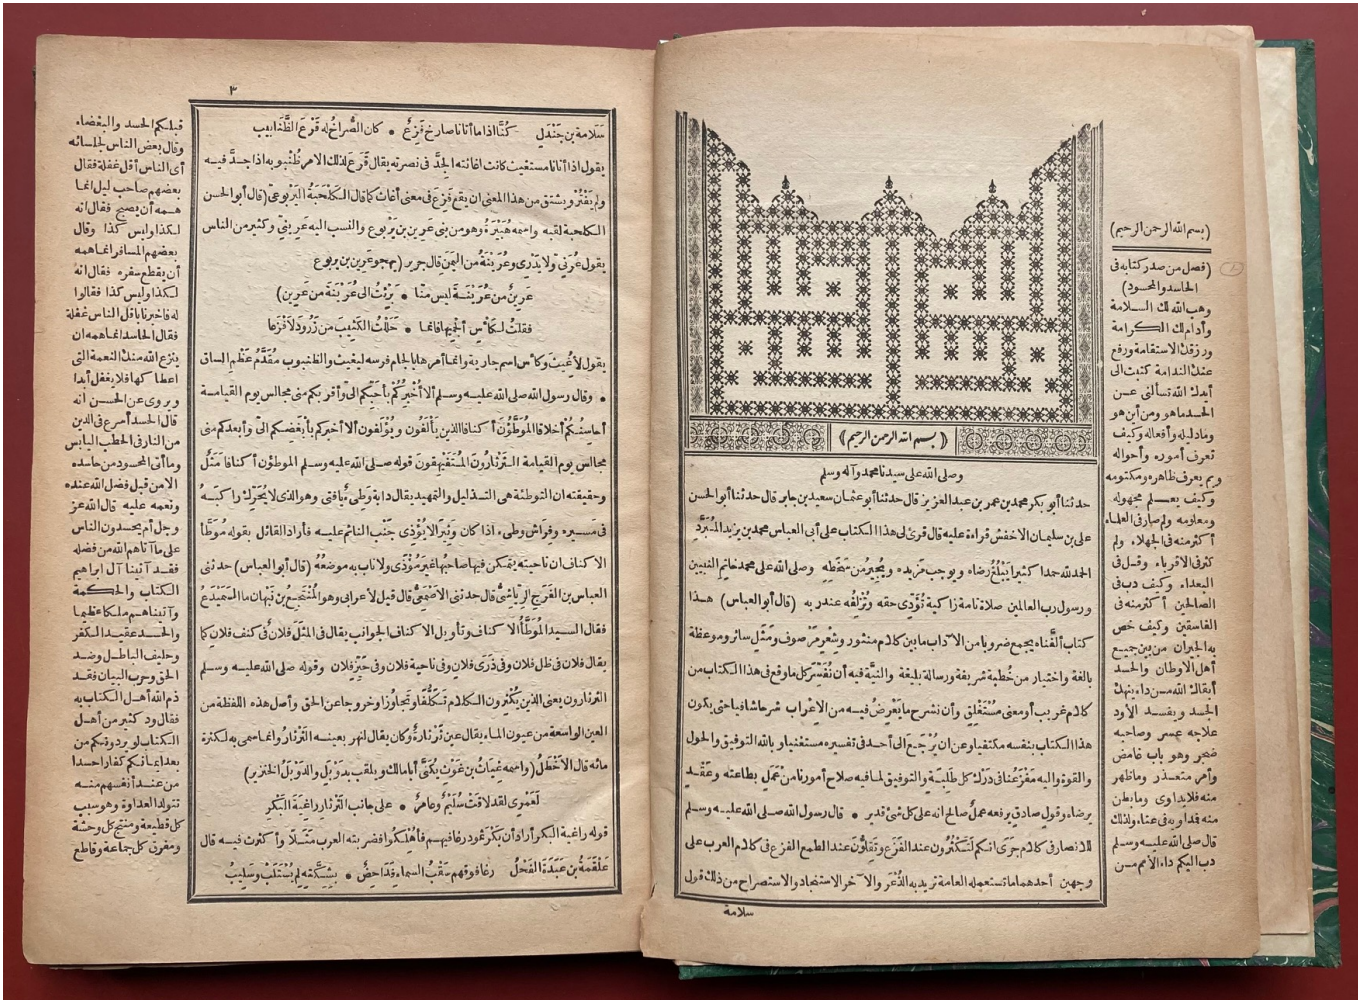 (بسم الله الرحمن الرحيم)
(فصل من صدر كتابه فى
الحاسد والمحسود)
وهب الله لك السلامة
وأدام لك الكرامة
ورزقك الاستقامة ورفع
عنك الندامة كتبت الى
أيدك الله تسألنى عن
الحسد ما هو ومن أين هو
وما دليله وأفعاله وكيف
تعرف أموره وأحواله
وبم يعرف ظاهره ومكتومه
وكيف يعلم مجهوله
ومعلومه ولم صار فى العلماء
أكثر منه فى الجهلاء ولم
كثر فى الاقرباء وقل فى
البعداء وكيف دب فى
الصالحين أكثر منه فى
الفاسقين وكيف خص
به الجيران من بين جميع
أهل الاوطان والحسد
أبقاك الله من داء ينهك
الجسد ويفسد الأود
علاجه عسر وصاحبه
ضجر وهو باب غامض
وأمر متعذر وما ظهر
منه فلا يداوى وما بطن
منه فمداويه فى عناء ولذلك
قال صلى الله عليه وسلم
دب اليكم داء الأمم من
﴿ بسم الله الرحمن الرحيم ﴾
وصلى الله على سيدنا محمد وآله وسلم
حدثنا أبو بكر محمد بن عمر بن عبد العزيز قال حدثنا أبو عثمان سعيد بن جابر قال حدثنا أبو الحسن
على بن سليمان الاخفش قراءة عليه قال قرئ لى هذا الكتاب على أبى العباس محمد بن يزيد المُبَرَّد
الحمد لله حمدا كثيرا يَبْلُغُ رضاه ويوجب مزيده ويُجِيرُ من سَخَطِه وصلى الله على محمد خاتم النبيين
ورسول رب العالمين صلاة تامة زاكية تُؤَدِّى حقه وتُزْلِفُه عند ربه (قال أبو العباس) هذا
كتاب ألَّفناه يجمع ضروبا من الآداب ما بين كلام منثور وشعر مَرْصوف ومَثَل سائر وموعظة
بالغة واختيار من خُطبة شريفة ورسالة بليغة والنيَّة فيه أن نُفَسِّر كل ما وقع فى هذا الكتاب من
كلام غريب أو معنى مُسْتَغْلِق وأن نشرح ما يَعْرِضُ فيه من الاِعْراب شرحا شافيا حتى يكون
هذا الكتاب بنفسه مكتفيا وعن ان يُرْجَعَ الى أحد فى تفسيره مستغنيا وبالله التوفيق والحول
والقوة واليه مَفْزَعُنا فى دَرَك كل طَلِبَةٍ والتوفيق لما فيه صلاح أمورنا من عَمَل بطاعته وعَقْد
برضاه وقول صادق يرفعه عملٌ صالح انه على كل شئ قدير • قال رسول الله صلى الله عليه وسلم
للانصار فى كلام جَرَى انكم لَتَكْثُرُون عند الفَزَع وتَقِلُّون عند الطمع الفزع فى كلام العرب على
وجهين أحدهما ما تستعمله العامة تريد به الذُّعْرَ والآخر الاستنجاد والاستصراخ من ذلك قول
سلامة
٣
سَلَامة بن جَنْدَل كُنَّا اذا ما أتانا صارخ فَزِعٌ • كان الصُّراخُ له قَرْعَ الظَّنابيب
يقول اذا أتانا مستغيث كانت اغاثته الجِدَّ فى نصرته يقال قَرَعَ لذلك الامر ظُنْبوبه اذا جدَّ فيه
ولم يَفْتُرْ ويشتق من هذا المعنى ان يقع فَزِعَ فى معنى أغاث كما قال الكَلْحَبَةُ اليَرْبوعىّ (قال أبو الحسن
الكلحبة لقبه واسمه هُبَيْرَةُ وهو من بنى عَرين بن يَرْبوع والنسب اليه عَرِينىٌّ وكثير من الناس
يقول عُرَنىٌّ ولا يَدْرى وعُرَيْنَةُ من اليمن قال جرير (يهجو عرين بن يربوع
عَرِينٌ من عُرَيْنَةَ ليس منّا • بَرِئْتُ الى عُرَيْنَةَ من عَرِين)
فقلتُ لكَأْس أَلْجِميها فانما • حَلَلْتُ الكَثِيبَ من زَرُودَ لأَفْزَعا
يقول لأُغِيثَ وكأس اسم جارية وانما أمرها بالجام فرسه ليغيث والظنبوب مُقَدَّمُ عَظْمِ الساق
• وقال رسول الله صلى الله عليه وسلم ألا أُخْبِرُكُمْ بأَحَبِّكُمْ الىّ وأقربكم منى مجالس يوم القيامة
أحاسِنُكُمْ أخلاقا المُوَطَّؤُنَ أكنافا الذين يَأْلَفون ويُؤْلَفون ألا أخبركم بأبغضكم الىّ وأبعدكم منى
مجالس يوم القيامة الثَّرْثارُونَ المُتَفَيْهِقونَ قوله صلى الله عليه وسلم الموطؤن أكنافا مَثَلٌ
وحقيقته ان التوطئة هى التذليل والتمهيد يقال دابة وَطِىءٌ يافتى وهو الذى لا يُحَرِّكُ راكِبَهُ
فى مَسيره وفِراش وطىء اذا كان وَثِيرًا لا يُؤْذى جَنْبَ النائم عليه فأراد القائل بقوله مُوَطَّأ
الاكناف ان ناحيته يَتَمَكن فيها صاحبها غيرَ مُؤْذًى ولا ناب به موضعُهُ (قال أبو العباس) حدثنى
العباس بن الفَرَج الرِّياشىُّ قال حدثنى الأصمعىُّ قال قيل لأعرابى وهو المُنْتَجِع بن نَبْهان ما السَّمَيْدَعُ
فقال السيد المُوَطَّأُ الاكناف وتأويل الاكناف الجوانب يقال فى المثَل فلانٌ فى كنف فلان كما
يقال فلان فى ظل فلان وفى ذَرَى فلان وفى ناحية فلان وفى حَيِّزِ فلان وقوله صلى الله عليه وسلم
الثرثارون يعنى الذين يُكْثِرُون الكلام تَكَلُّفًا وتَجاوُزًا وخروجا عن الحق وأصل هذه اللفظة من
العين الواسعة من عيون الماء يقال عين ثَرْثارَةٌ وكان يقال لنهر بعينه الثَّرْثارُ وانما سمى به لكثرة
مائه قال الأَخْطَلُ (واسمه غِيَاثُ بن غَوْث يُكَنَّى أبا مالك ويلقب بدَوْبَلٍ والدَوْبَلُ الخنزير)
لَعَمْرى لقد لاقتْ سُلَيْمٌ وعامرٌ • على جانب الثرثار راغِيَةَ البَكْر
قوله راغية البكر أراد أن بَكْرَ ثمود رغا فيهم فأُهْلِكُوا فضربته العرب مَثَلًا وأكثرت فيه قال
عَلْقَمَةُ بن عَبَدَةَ الفَحْلُ رغا فوقهم سَقْبُ السماءِ فَداحِصٌ • بِشِكَّتِه لم يُسْتَلَبْ وسَلِيبُ
قبلكم الحسد والبغضاء
وقال بعض الناس لجلسائه
أى الناس أقل غفلة فقال
بعضهم صاحب ليل انما
همه أن يصبح فقال انه
لكذا وليس كذا وقال
بعضهم المسافر انما همه
أن يقطع سفره فقال انه
لكذا وليس كذا فقالوا
له فاخبرنا بأقل الناس غفلة
فقال الحاسد انما همه ان
ينزع الله منك النعمة التى
اعطاكها فلا يغفل أبدا
ويروى عن الحسن أنه
قال الحسد أسرع فى الدين
من النار فى الحطب اليابس
وما أتى المحسود من حاسده
الا من قبل فضل الله عنده
ونعمه عليه قال الله عز
وجل أم يحسدون الناس
على ما آتاهم الله من فضله
فقد آتينا آل ابراهيم
الكتاب والحكمة
وآتيناهم ملكا عظيما
والحسد عقيد الكفر
وحليف الباطل وضد
الحق وحرب البيان فقد
ذم الله أهل الكتاب به
فقال ود كثير من أهل
الكتاب لو يردونكم من
بعد ايمانكم كفارا حسدا
من عند أنفسهم منه
تتولد العداوة وهو سبب
كل قطيعة ومنتج كل وحشة
ومفرق كل جماعة وقاطع